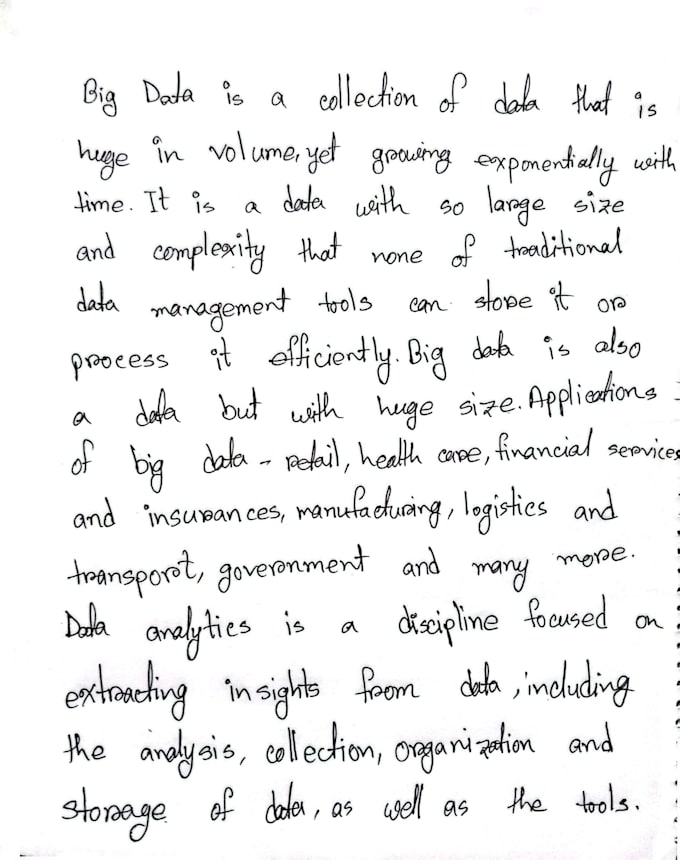 Big Data is a collection of data that is
huge in volume, yet growing exponentially with
time. It is a data with so large size
and complexity that none of traditional
data management tools can store it or
process it efficiently. Big data is also
a data but with huge size. Applications
of big data - retail, health care, financial services
and insurances, manufacturing, logistics and
transport, government and many more.
Data analytics is a discipline focused on
extracting insights from data, including
the analysis, collection, organization and
storage of data, as well as the tools.